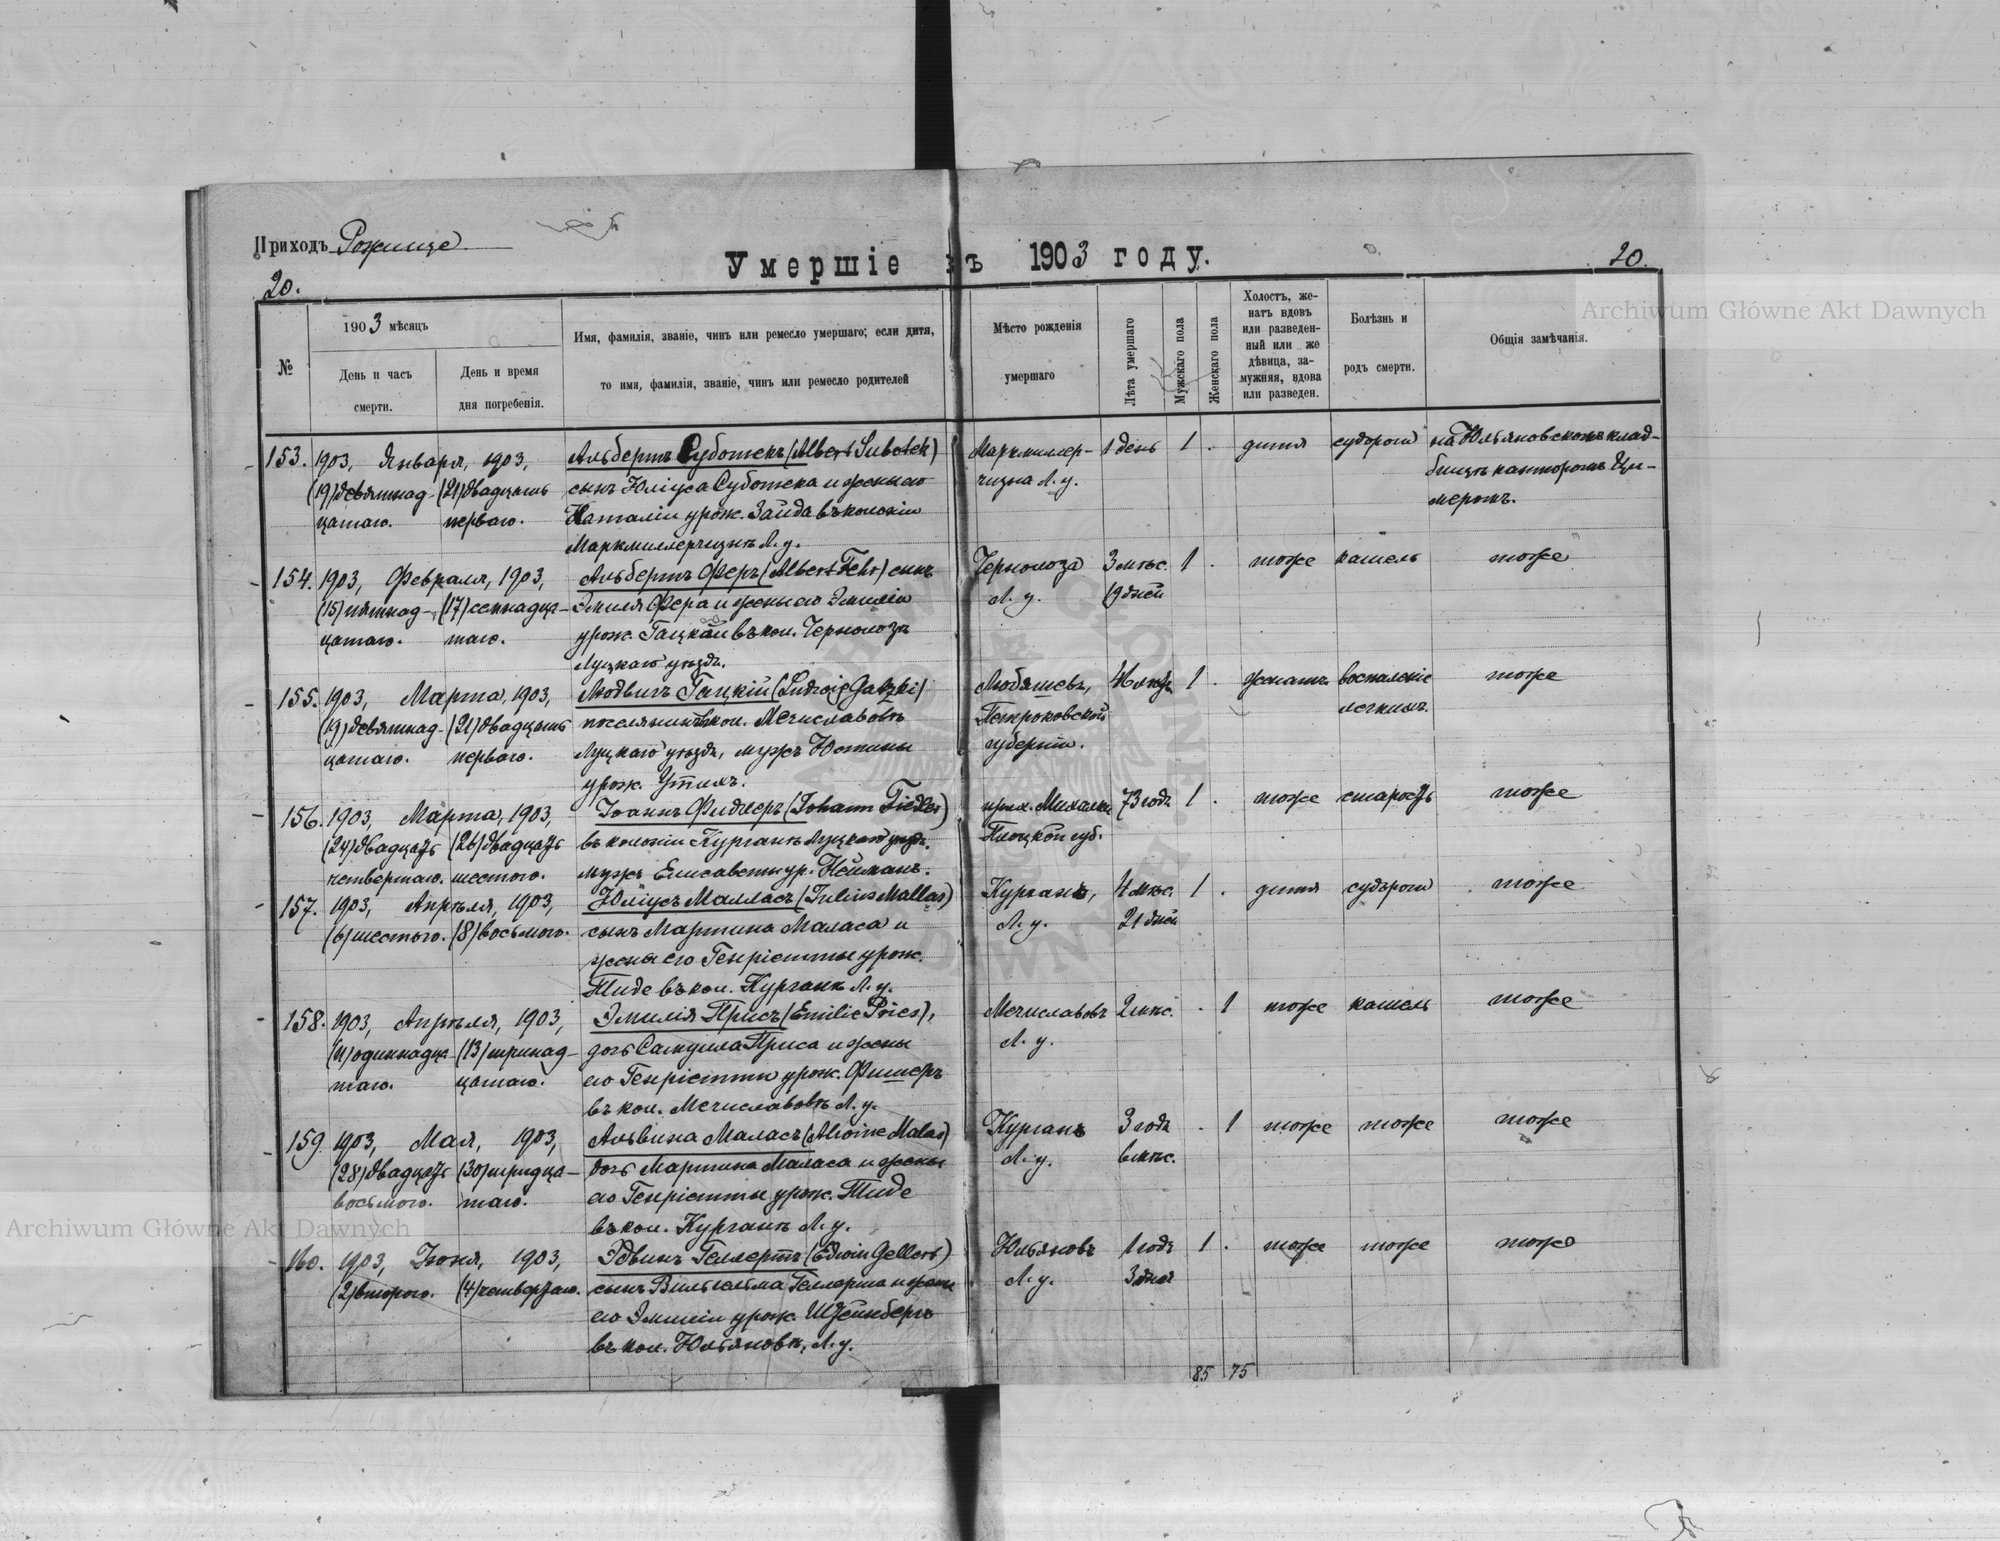 Приходъ Рожище
Умершіе въ 1903 году.
20.
20.
№
1903 мѣсяцъ
День и часъ смерти.
День и время дня погребенія.
Имя, фамилія, званіе, чинъ или ремесло умершаго; если дитя,
то имя, фамилія, званіе, чинъ или ремесло родителей
Мѣсто рожденія
умершаго
Лѣта умершаго
Мужскаго пола
Женскаго пола
Холостъ, же-
натъ вдовъ
или разведен-
ный или же
дѣвица, за-
мужняя, вдова
или разведен.
Болѣзнь и
родъ смерти.
Общія замѣчанія.
153. 1903, Января, 1903, Альбертъ Суботекъ (Albert Subotek) Маркмиллер- 1 день 1 . дитя судороги на Юльяновскомъ клад-
(19) девятнад- (21) двадцать сынъ Юліуса Суботека и жены его чизна Л. у. бищѣ канторомъ Ци-
цатаго. перваго. Наталіи урож. Зайда въ колоніи меромъ.
Маркмиллерчизнѣ Л. у.
154. 1903, Февраля, 1903, Альбертъ Феръ (Albert Fehr) сынъ Чернолоза 3 мѣс. 1 . тоже кашель тоже
(15) пятнад- (17) семнадца- Эмиля Фера и жены его Эмиліи Л. у. 19 дней
цатаго. таго. урож. Гацкой въ кол. Чернолозѣ
Луцкаго уѣзда.
155. 1903, Марта, 1903, Людвигъ Гацкій (Ludwig Gatzki) Любяшевъ, 46 лѣтъ 1 . женатъ воспаленіе тоже
(19) девятнад- (21) двадцать поселянинъ кол. Мечиславовъ Петроковской легкихъ.
цатаго. перваго. Луцкаго уѣзда, мужъ Юстины губерніи.
урож. Утихъ.
156. 1903, Марта, 1903, Іоаннъ Фидлеръ (Johann Fiedler) Михалки 73 года 1 . тоже старость тоже
(24) двадцать (26) двадцать въ колоніи Курганъ Луцкаго уѣзда. Плоцкой губ.
четвертаго. шестого. мужъ Елисаветы ур. Нейманъ.
157. 1903, Апрѣля, 1903, Юліусъ Малласъ (Julius Mallas) Курганъ, 4 мѣс. 1 . дитя судороги тоже
(6) шестого. (8) восьмого. сынъ Мартина Маласа и Л. у. 21 дней
жены его Генріетты урож.
Тиде въ кол. Курганѣ Л. у.
158. 1903, Апрѣля, 1903, Эмилія Присъ (Emilie Pries), Мечиславовъ 2 мѣс. . 1 тоже кашель тоже
(11) одиннадца- (13) тринад- дочь Самуила Приса и жены Л. у.
таго. цатаго. его Генріетты урож. Фишеръ
въ кол. Мечиславовъ Л. у.
159. 1903, Мая, 1903, Альвина Маласъ (Alwine Malas) Курганъ 3 года . 1 тоже тоже тоже
(28) двадцать (30) тридца- дочь Мартина Маласа и жены Л. у. 6 мѣс.
восьмого. таго. его Генріетты урож. Тиде
въ кол. Курганѣ Л. у.
160. 1903, Іюня, 1903, Эдвинъ Геллертъ (Edwin Gellert) Юльяновъ 1 годъ 1 . тоже тоже тоже
(2) второго. (4) четвертаго. сынъ Вильгельма Геллерта и жены Л. у. 3 дня
его Эмиліи урож. Штейнбергъ
въ кол. Юльяновъ, Л. у.
85 75
Archiwum Główne Akt Dawnych
Archiwum Główne Akt Dawnych